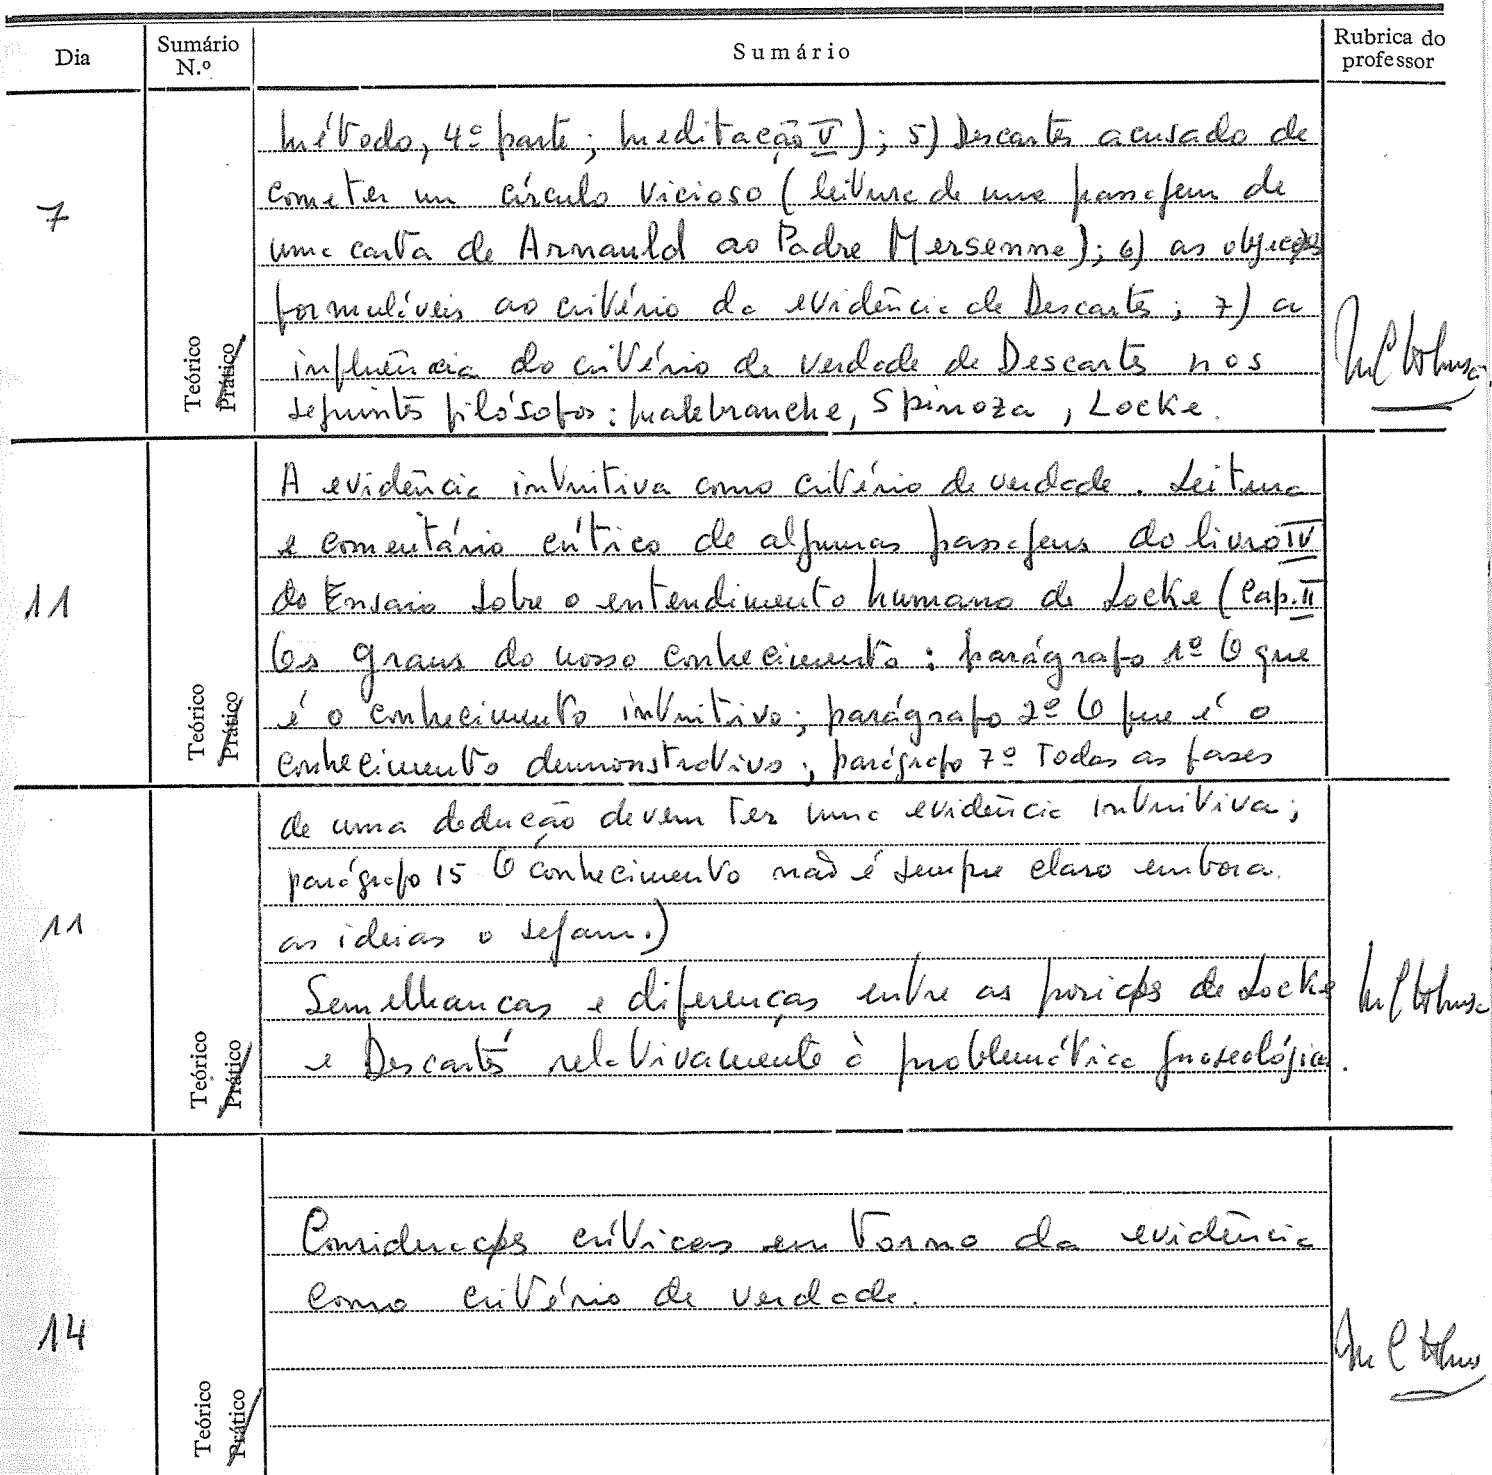 Dia
Sumário N.º
Sumário
Rubrica do professor
7
Teórico
Prático
Método, 4ª parte; Meditação V); 5) Descartes acusado de
cometer um círculo vicioso (leitura de uma passagem de
uma carta de Arnauld ao Padre Mersenne); 6) as objecções
formuláveis ao critério da evidência de Descartes; 7) a
influência do critério de verdade de Descartes nos
seguintes filósofos: Malebranche, Spinoza, Locke.
11
Teórico
Prático
A evidência intuitiva como critério de verdade. Leitura
e comentário crítico de algumas passagens do livro IV
do Ensaio sobre o entendimento humano de Locke (Cap. II
Os graus do nosso conhecimento: parágrafo 1º O que
é o conhecimento intuitivo; parágrafo 2º O que é o
conhecimento demonstrativo; parágrafo 7º Todas as fases
11
Teórico
Prático
de uma dedução devem ter uma evidência intuitiva;
parágrafo 15 O conhecimento não é sempre claro embora
as ideias o sejam.)
Semelhanças e diferenças entre as posições de Locke
e Descartes relativamente à problemática gnoseológica.
14
Teórico
Prático
Considerações críticas em torno da evidência
como critério de verdade.